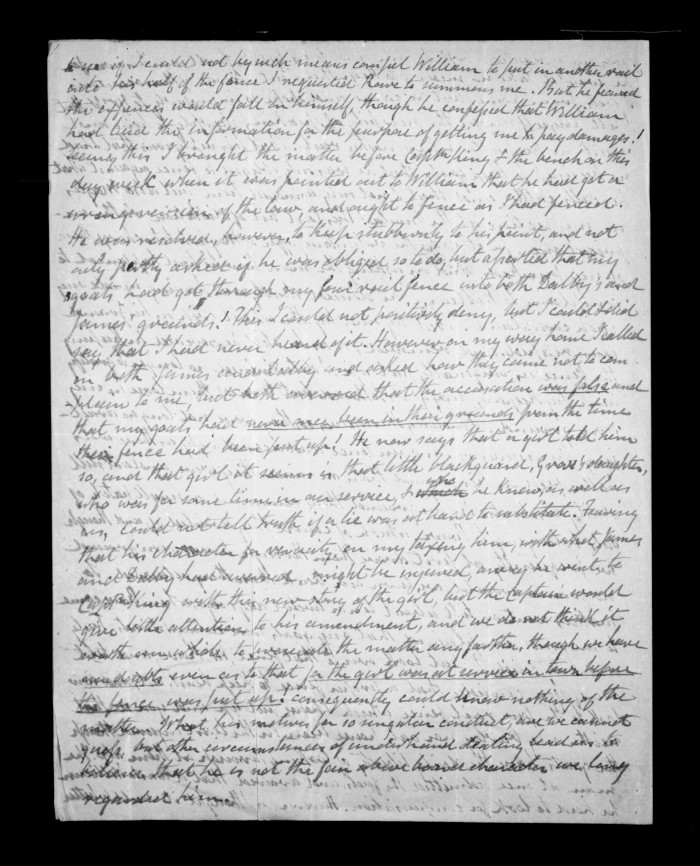 if I could not by such means compel William to put in another rail
into his half of the fence I requested Rowe to summons me. But he feared
the expences would fall on himself, though he confessed that William
had laid the information for the purpose of getting me to pay damages!
Seeing this I brought the matter before Captn King & the bench on this
day week when it was pointed out to William that he had got a
wrong version of the law, and ought to fence as I had fenced.
He was resolved, however, to keep stubbornly to his point, and not
only asked if he was obliged so to do, but asserted that my
goats had got through my four rail fence into both Dalby's and
James' grounds! This I could not positively deny, but I could & did
say that I had never heard of it. However on my way home I called
on both James and Dalby and asked how they came not to com
plain to me but both answered that the accusation was false and
that my goats had never once been in their grounds from the time
their fence had been put up! He now says that a girl told him
so, and that girl it seems is that little blackguard, Grove's daughter,
who was for some time in our service, & who he knew, as well as
us, could not tell truth if a lie was at hand to substitute. Fearing
that his character for veracity, on my taxing him, with what James
and Dalby had averred might be injured, away he went to
Captn King with this new story of the girl, but the Captain would
give little attention to his amendment, and we do not think it
worth our while to the matter any further, though we have
our doubts even as to that for the girl was at service in town before
the fence was put up: consequently could know nothing of the
matter. What his motives for so singular conduct, are we cannot
guess, but other circumstances of underhand dealing lead us to
believe that he is not the fair above board character we long
regarded him